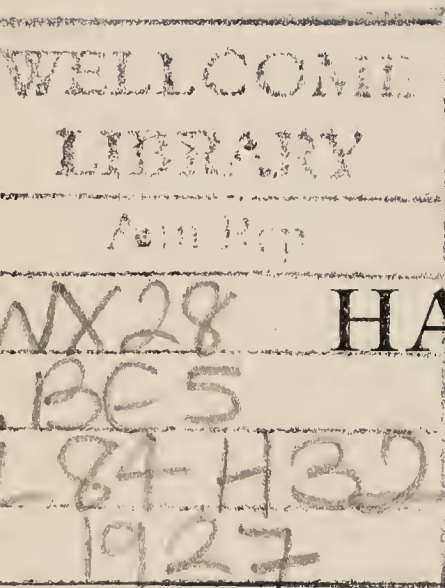 WELLCOME
LIBRARY
Ann Rep
WX28 HA
.BE5
L84-H32
1927